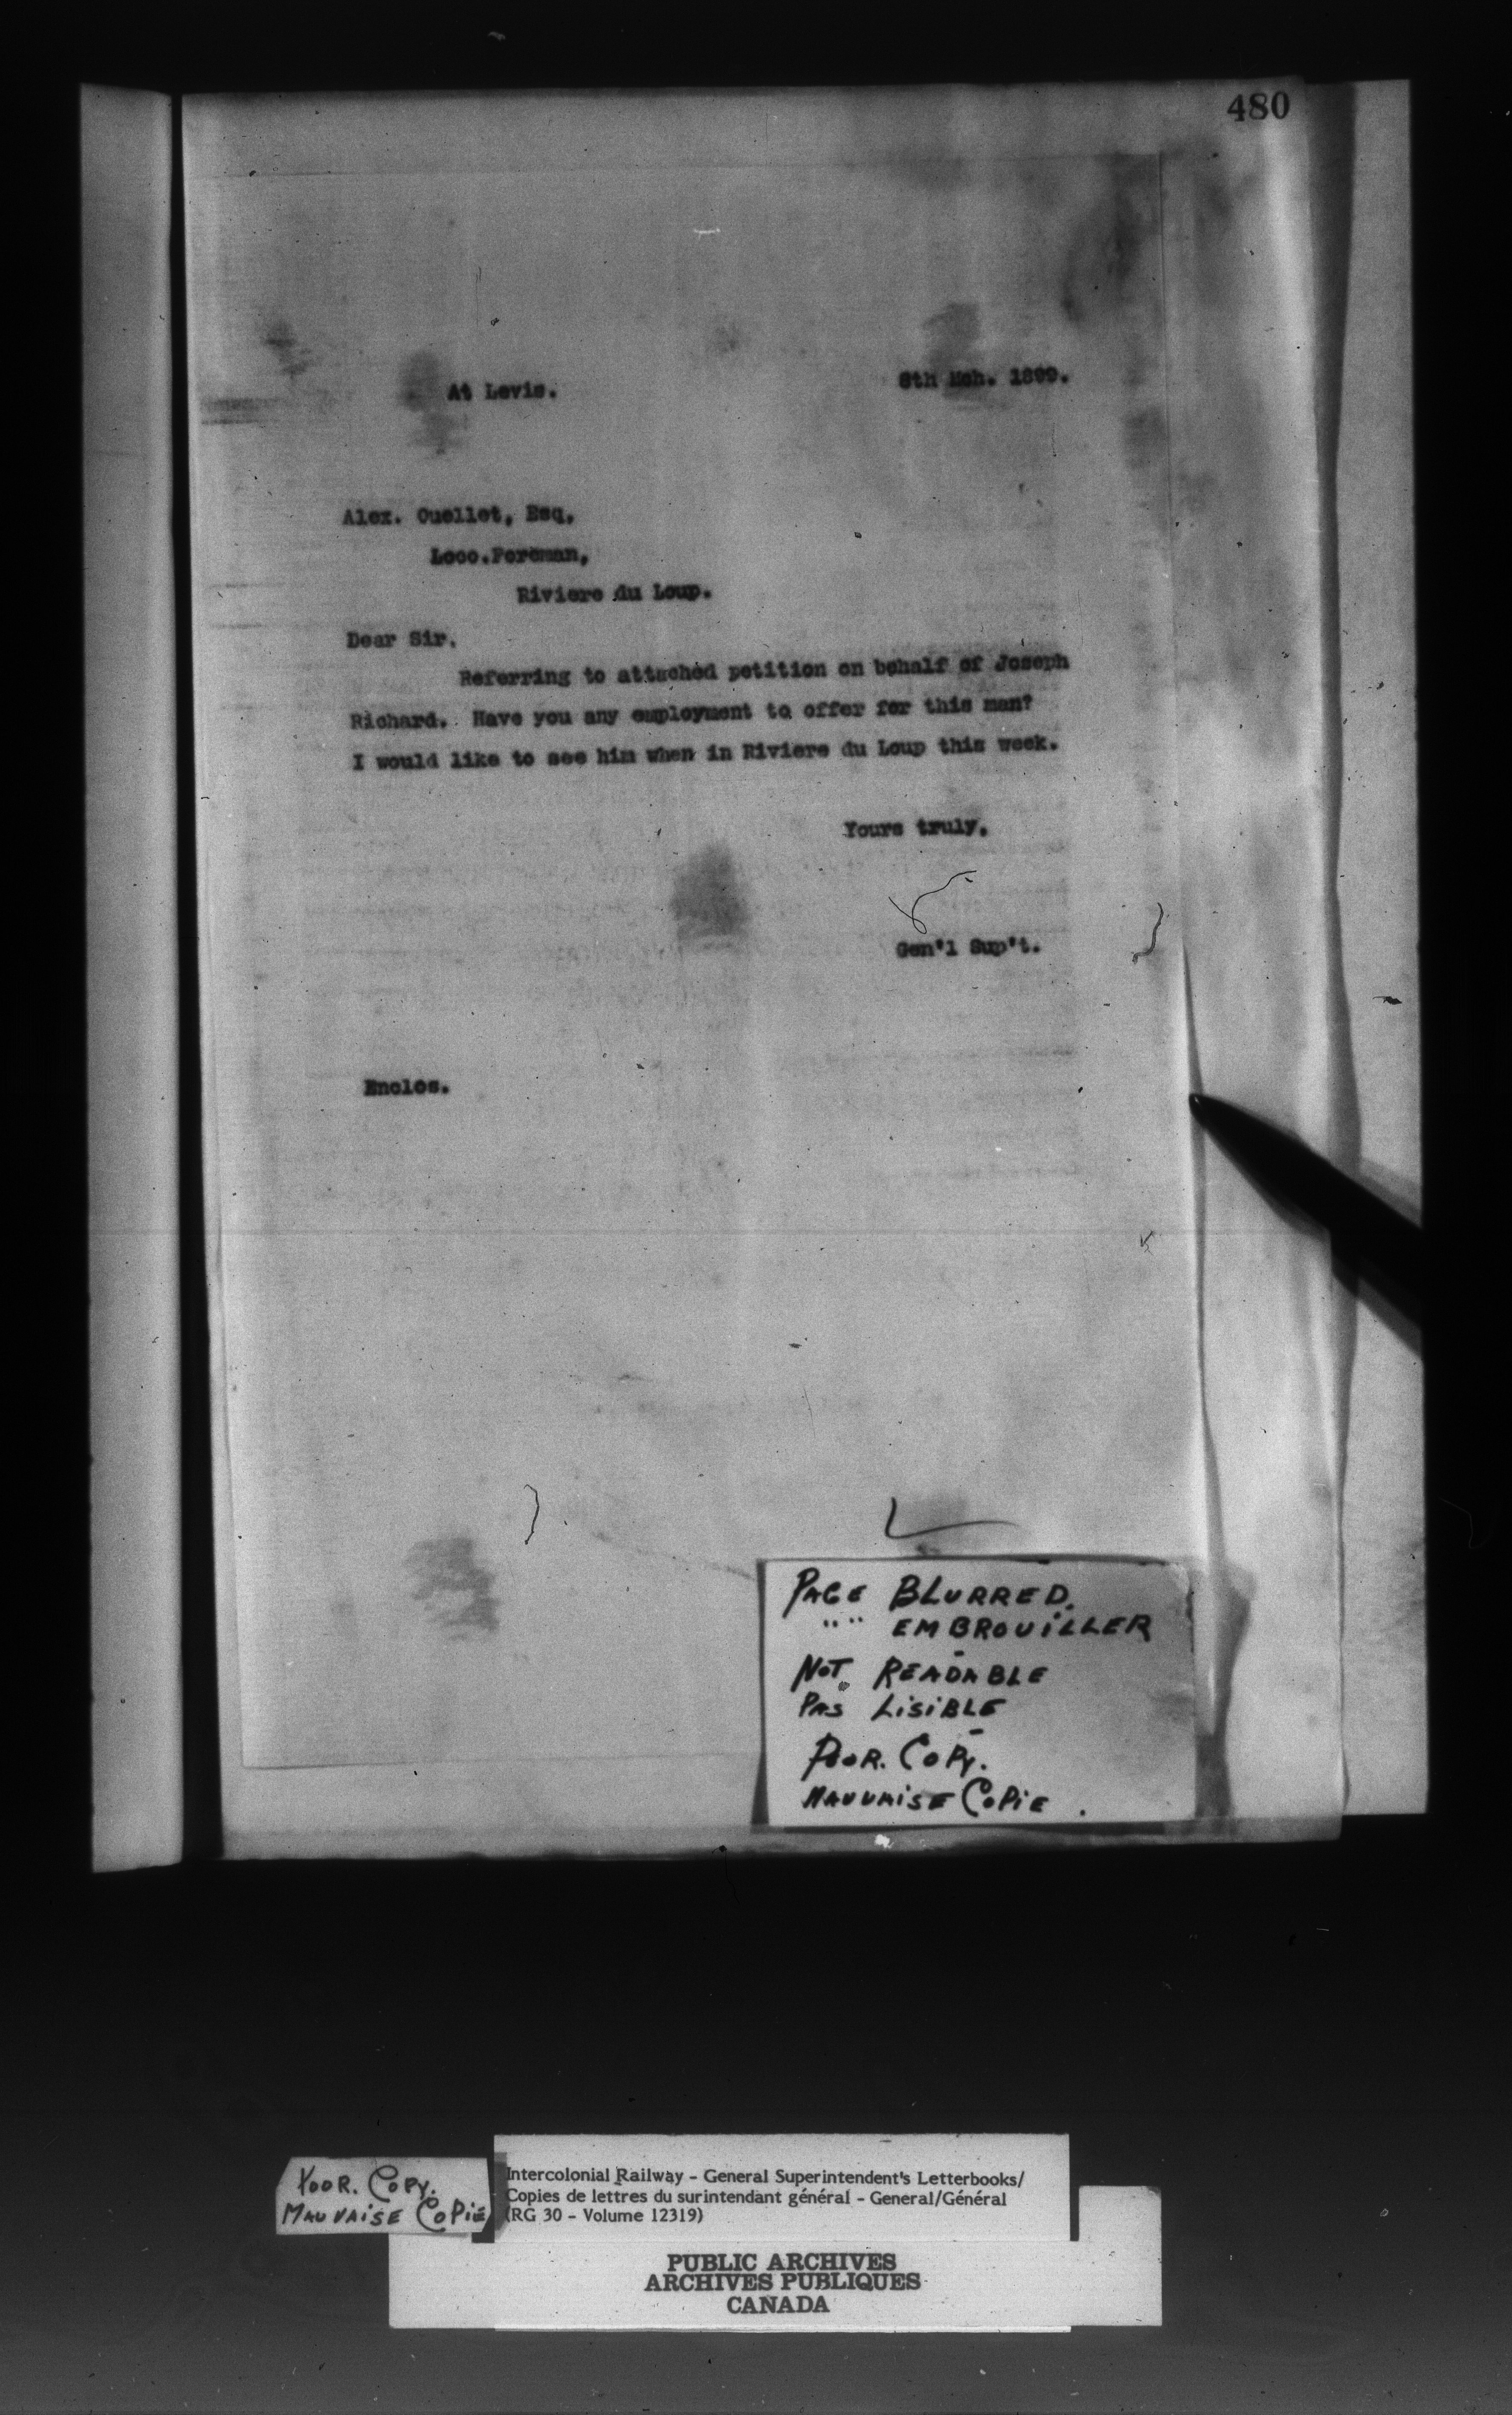 480
At Levis.
8th Mch. 1899.
Alex. Ouellet, Esq,
Loco.Foreman,
Riviere du Loup.
Dear Sir.
Referring to attached petition on behalf of Joseph
Richard. Have you any employment to offer for this man?
I would like to see him when in Riviere du Loup this week.
Yours truly,
Gen'l Sup't.
Enclos.
PAGE BLURRED.
" " EMBROUILLER
NOT READABLE
PAS LISIBLE
POOR. COPY.
MAUVAISE COPIE.
POOR. COPY.
MAUVAISE COPIE
Intercolonial Railway - General Superintendent's Letterbooks/
Copies de lettres du surintendant général - General/Général
(RG 30 - Volume 12319)
PUBLIC ARCHIVES
ARCHIVES PUBLIQUES
CANADA